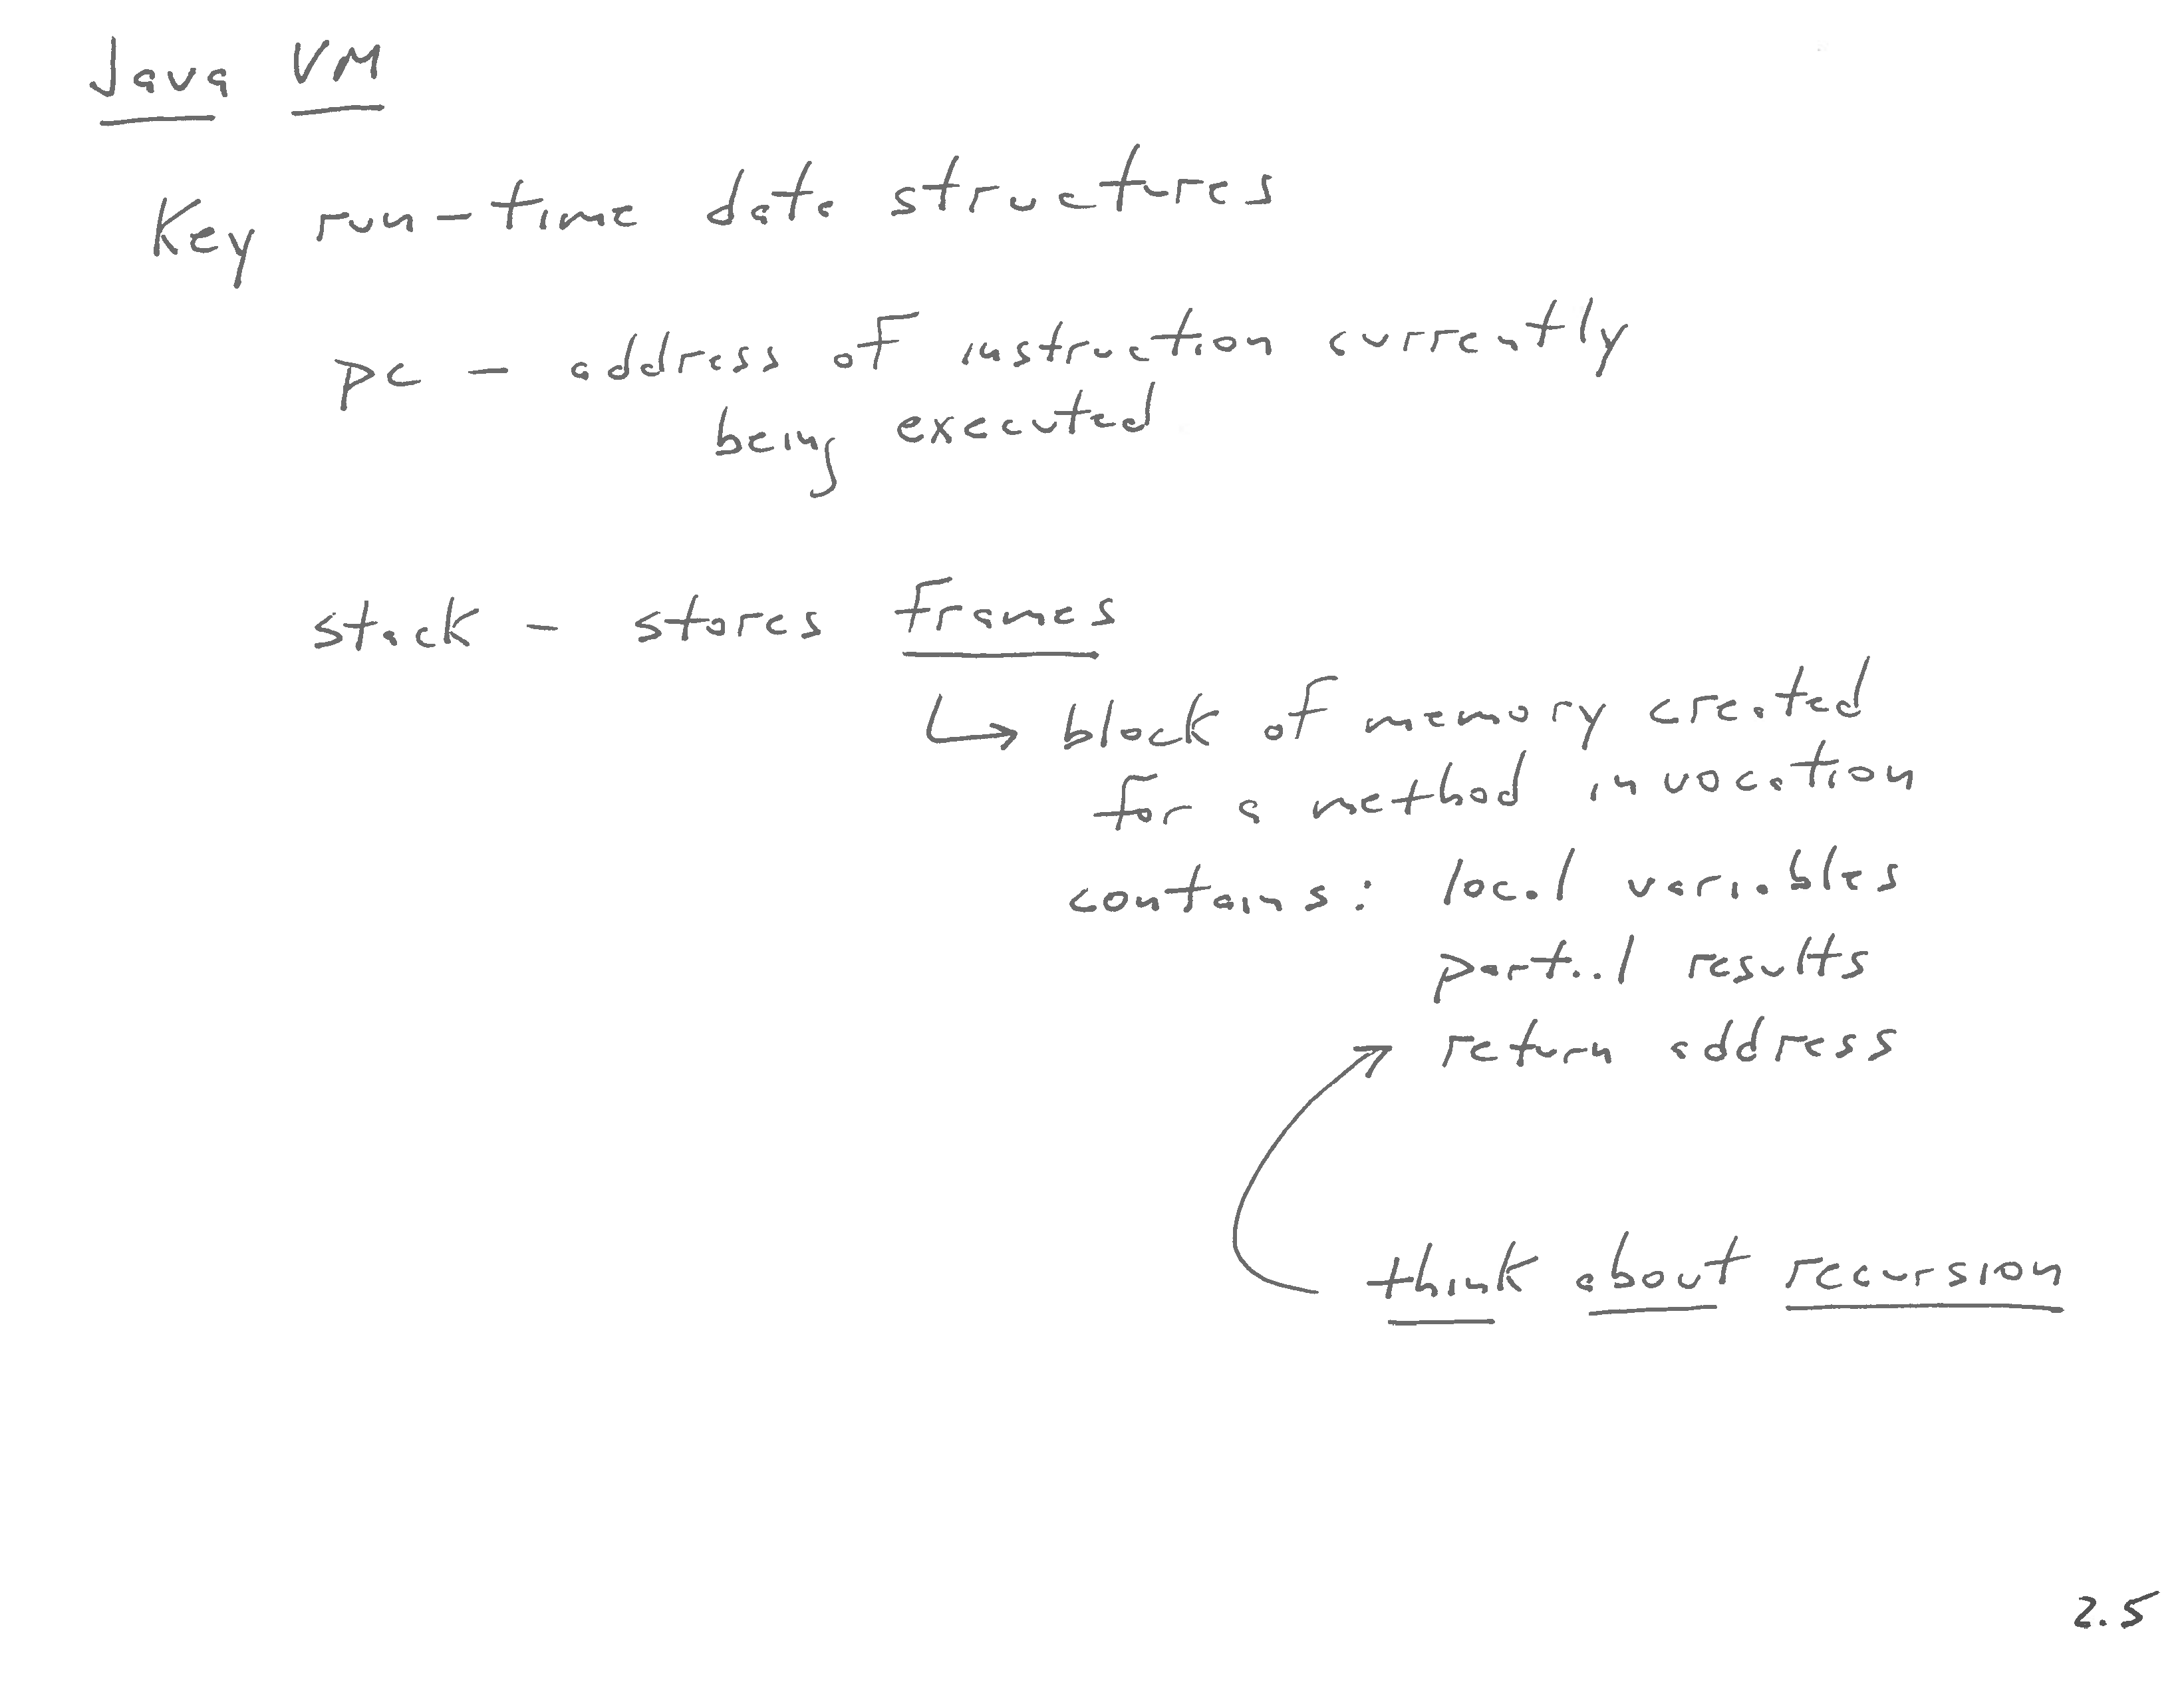 Java VM
Key run-time data structures
pc – address of instruction currently
being executed
stack – stores frames
↳ block of memory created
for a method invocation
contains: local variables
partial results
return address
think about recursion
2.5